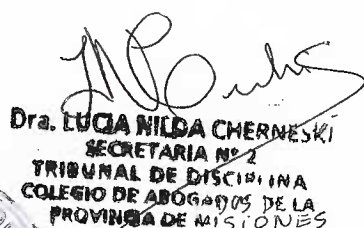 Dra. LUCIA NILDA CHERNESKI
SECRETARIA Nº 2
TRIBUNAL DE DISCIPLINA
COLEGIO DE ABOGADOS DE LA
PROVINCIA DE MISIONES